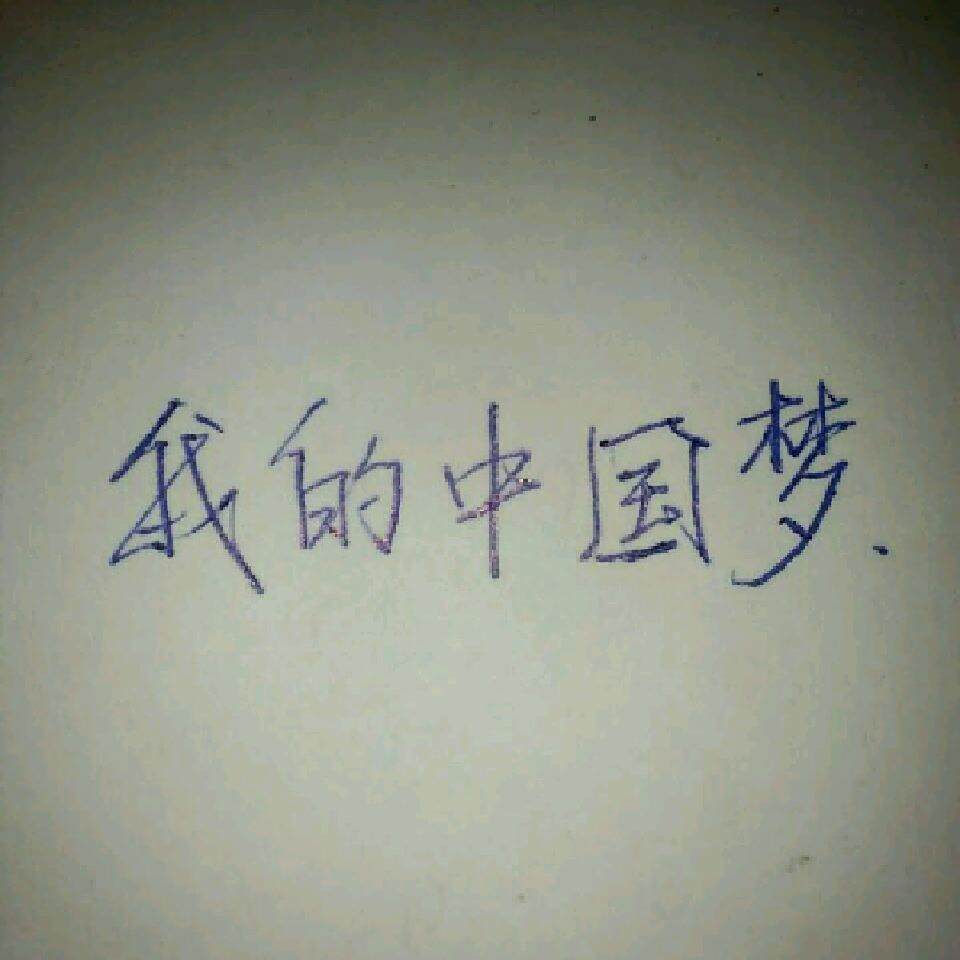 我的中国梦.